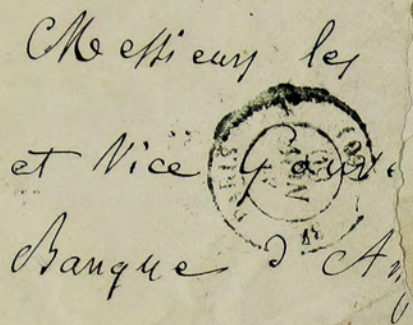 Messieurs les
et Vice Gouve
Banque d'An
PARIS
(60)